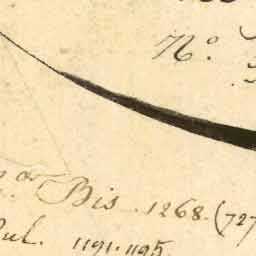 Nº.
Bis 1268. (727
1191. 1195.